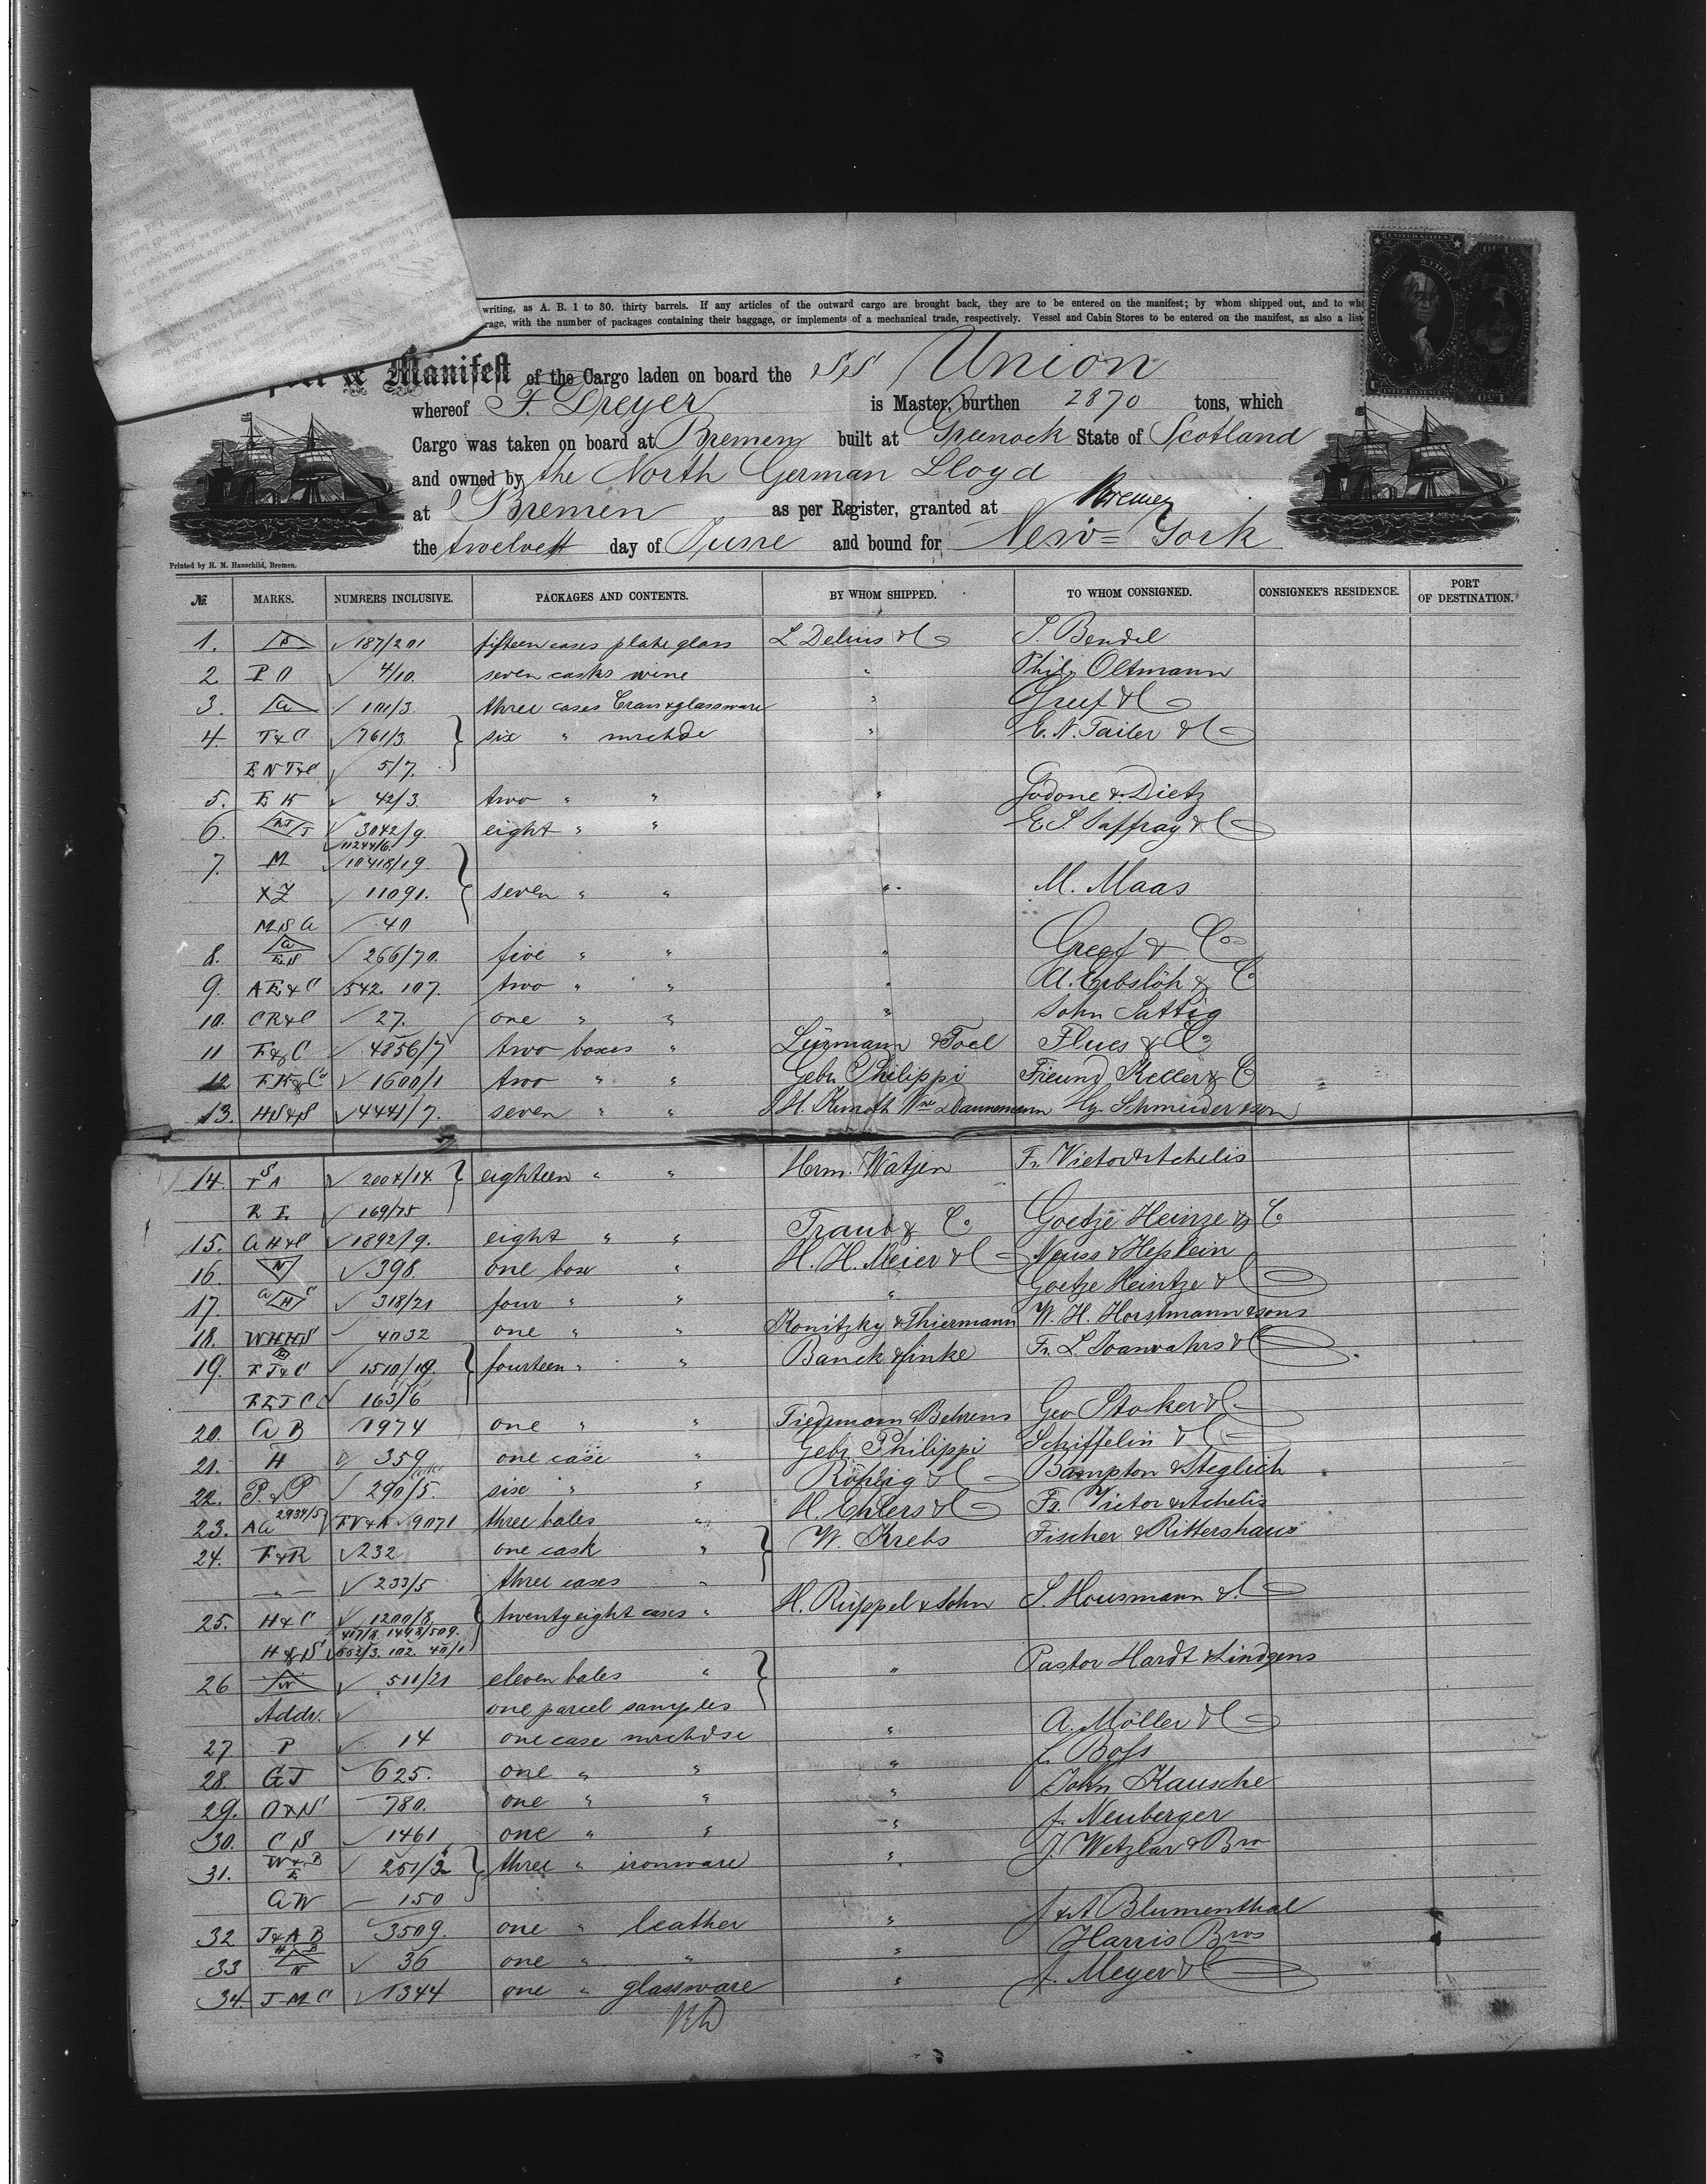 writing, as A. B. 1 to 30. thirty barrels. If any articles of the outward cargo are brought back, they are to be entered on the manifest; by whom shipped out, and to
rage, with the number of packages containing their baggage, or implements of a mechanical trade, respectively. Vessel and Cabin Stores to be entered on the manifest, as also a
& Manifest of the Cargo laden on board the SS Union
whereof F. Dreyer is Master, burthen 2870 tons, which
Cargo was taken on board at Bremen built at Greenock State of Scotland
and owned by the North German Lloyd
at Bremen as per Register, granted at Bremen
the twelvest day of June and bound for New=York
Printed by H. M. Hauschild, Bremen.
№ MARKS. NUMBERS INCLUSIVE. PACKAGES AND CONTENTS. BY WHOM SHIPPED. TO WHOM CONSIGNED. CONSIGNEE'S RESIDENCE. PORT OF DESTINATION.
1. 187/201 fifteen cases plate glass L Delius & C S. Bendel
2. P O 4/10. seven casks wine " Phil. Oltmann
3. a 101/3. three cases glassware " Greef & C
4. T&C 761/3. } six " mrchdse " E. N. Tailer & C
E N T&C 5/7.
5. E K 42/3. two " " " Godone & Dietz
6. 3042/9. eight " " E S Jaffray & C
11244/6.
7. M 10418/19.
XZ 11091. } seven " " " M. Maas
M S a 40
8. a E S 266/70. five " " " Greef & Co
9. A E & C 542. 107. two " " " A. Erbslöh & C
10. C R & C 27. one " " " John Sattig
11 F & C 4856/7 two boxes " Lürmann & Toel Flues & Co
12 F K & Co 1600/1 two " " Gebr. Philippi Freund Keller & C
13. H S & S 4441/7. seven " " Hy. Schmieder & son
14. S T A 2004/14. } eighteen " " Herm. Wätjen Fr. Vietor & Achelis
169/75
15. a H & C 1892/9. eight " " Traub & Co Goetze Heinze & C
16. N 398. one box " H. H. Meier & C Neuss & Heslein
17. a H C 318/21 four " " " Goetze Heintze & C
18. W H H S 4032 one " " Konitzky & Thiermann W. H. Horstmann & sons
19. F T & C 1510/19. } fourteen " " Banck & finke
163/6
20. a B 1974 one " " Tiedemann Behrens Geo Stoker & C
21. H 359 one case " Gebr. Philippi Schiffelin & C
22. P. & P 290/5. six " " Röhlig & C Bampton & Steglich
23. A a 2934/5 F V & A 9071 three bales " H. Ehlers & C Fr. Vietor & Achelis
24. F & R 232 one cask " } W. Krebs Fischer & Rittershaus
" 233/5 three cases "
25. H & C 1200/8. { twenty eight cases " H. Rüppel & Sohn S. Housmann & C
417/8. 1498/509.
H & S 552/3. 102. 40/1
26 W 511/21 eleven bales " } " Pastor Hardt & Lindgens
Addr. one parcel samples
27 P 14 one case mrchdse " A. Möller & C
28. G T 625. one " " " f. Boss
29. O & N 780. one " " " John Kausche
30. C S 1461 one " " " f. Neuberger
31. W & B E 251/2 } three " ironware " J. Wetzlar & Bro
a W 150
32 J & A B 3509. one " leather " J & A Blumenthal
33 H B N 36 one " " " Harris Bros
34. J M C 1344 one " glassware " f. Meyer & C